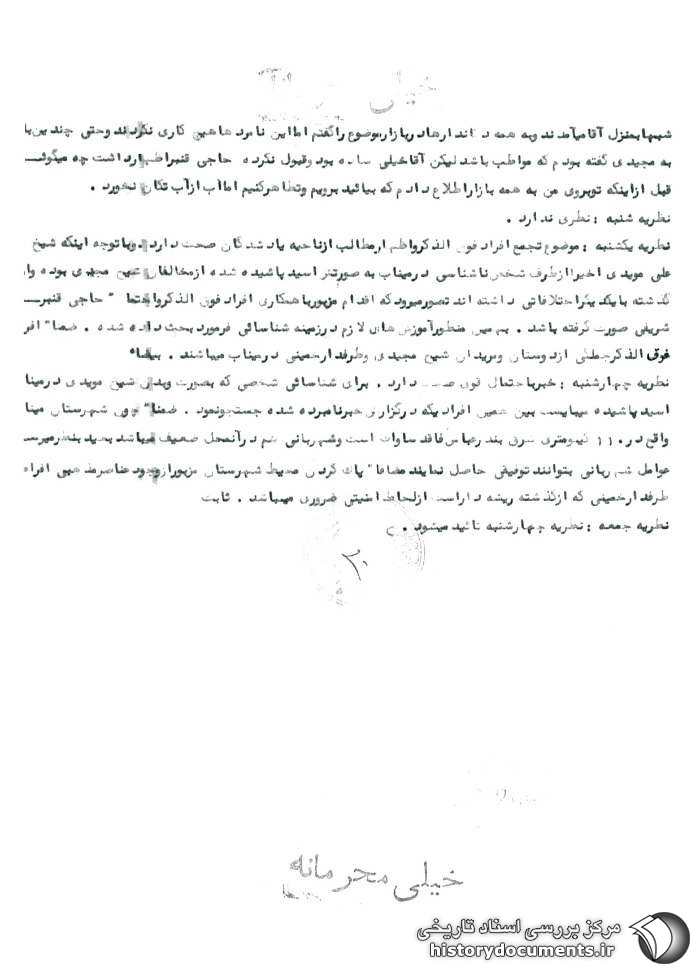 خیلی
شبها بمنزل آقا میآمدند و به همه دکاندارها در بازار موضوع را گفتم اما این نامردها هیچ کاری نکردند و حتی چندین با
به مجیدی گفته بودم که مواظب باشد لیکن آقا خیلی ساده بود و قبول نکرد. حاجی قنبر اظهار داشت چه میگوئـ
قبل از اینکه تو بروی من به همه بازار اطلاع دادم که بیائید برویم و تظاهر کنیم اما آب از آب تکان نخورد .
نظریه شنبه : نظری ندارد .
نظریه یکشنبه : موضوع تجمع افراد فوق الذکر و اظهار مطالب از ناحیه یاد شدگان صحت دارد . و با توجه اینکه شیخ
علی مویدی اخیرا از طرف شخص ناشناسی در میناب به صورتش اسید پاشیده شده از مخالفان شیخ مجیدی بوده و
گذشته با یکدیگر اختلافاتی داشته اند تصور میرود که اقدام مزبور با همکاری افراد فوق الذکر و احتما " حاجی قنبر
شریفی صورت گرفته باشد . بهمین منظور آموزش های لازم در زمینه شناسائی فرد مورد بحث داده شده . ضمنا" افر
فوق الذکر جملگی از دوستان و مریدان شیخ مجیدی و طرفدار خمینی در میناب میباشند . بیضاء
نظریه چهارشنبه : خبر باحتمال قوی صحت دارد . برای شناسائی شخصی که بصورت شیخ مویدی در مینا
اسید پاشیده میبایست بین همین افراد یکه در گزاری خبر نامبرده شده جستجو نمود . ضمنا" چون شهرستان مینا
واقع در ۱۱۰ کیلومتری شرق بندرعباس فاقد ساواک است و شهربانی هم در آنمحل ضعیف میباشد بعید بنظر میرسـ
عوامل شهربانی بتوانند توفیقی حاصل نمایند مضافا" پاک کردن محیط شهرستان مزبور از وجود عناصر مذهبی افراد
طرفدار خمینی که از گذشته ریشه دار است از لحاظ امنیتی ضروری میباشد . ثابت
نظریه جمعه : نظریه چهارشنبه تائید میشود .
خیلی محرمانه
مرکز بررسی اسناد تاریخی
historydocuments.ir